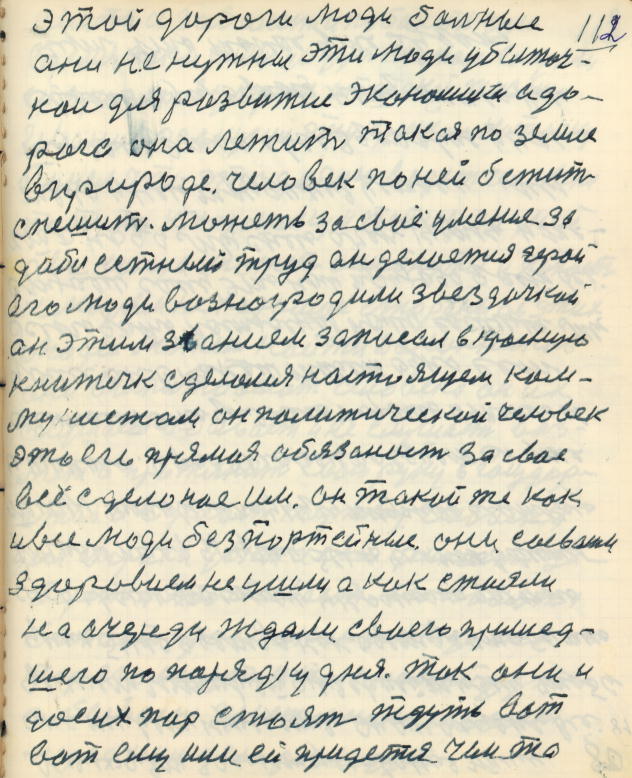 этой дороги люди больные
112
они не нужны эти люди убыточ-
нои для розвитие экономики а до-
рога она лежить такая по земле
в природе. человек по ней бежить
спешит. можеть за своё умение за
добисстный труд он делоется герой
его люди возногродили звездочкой
он этим званием записал в красную
книжечк сделолся ностоящем ком-
мунистом он политической человек
это его прямоя обязаност за свое
всё сделоное им. он такой же как
и все люди без портейные. они со своим
здоровием не ушли а как стояли
на очереди ждали своего пришед-
шего по порядку дня. так они и
до сих пор стоят ждуть вот
вот ему или ей придется чем то